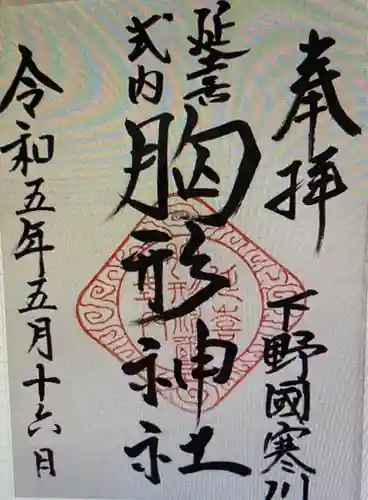 奉拝
下野國寒川
延喜
式内
胸形神社
令和五年五月十六日